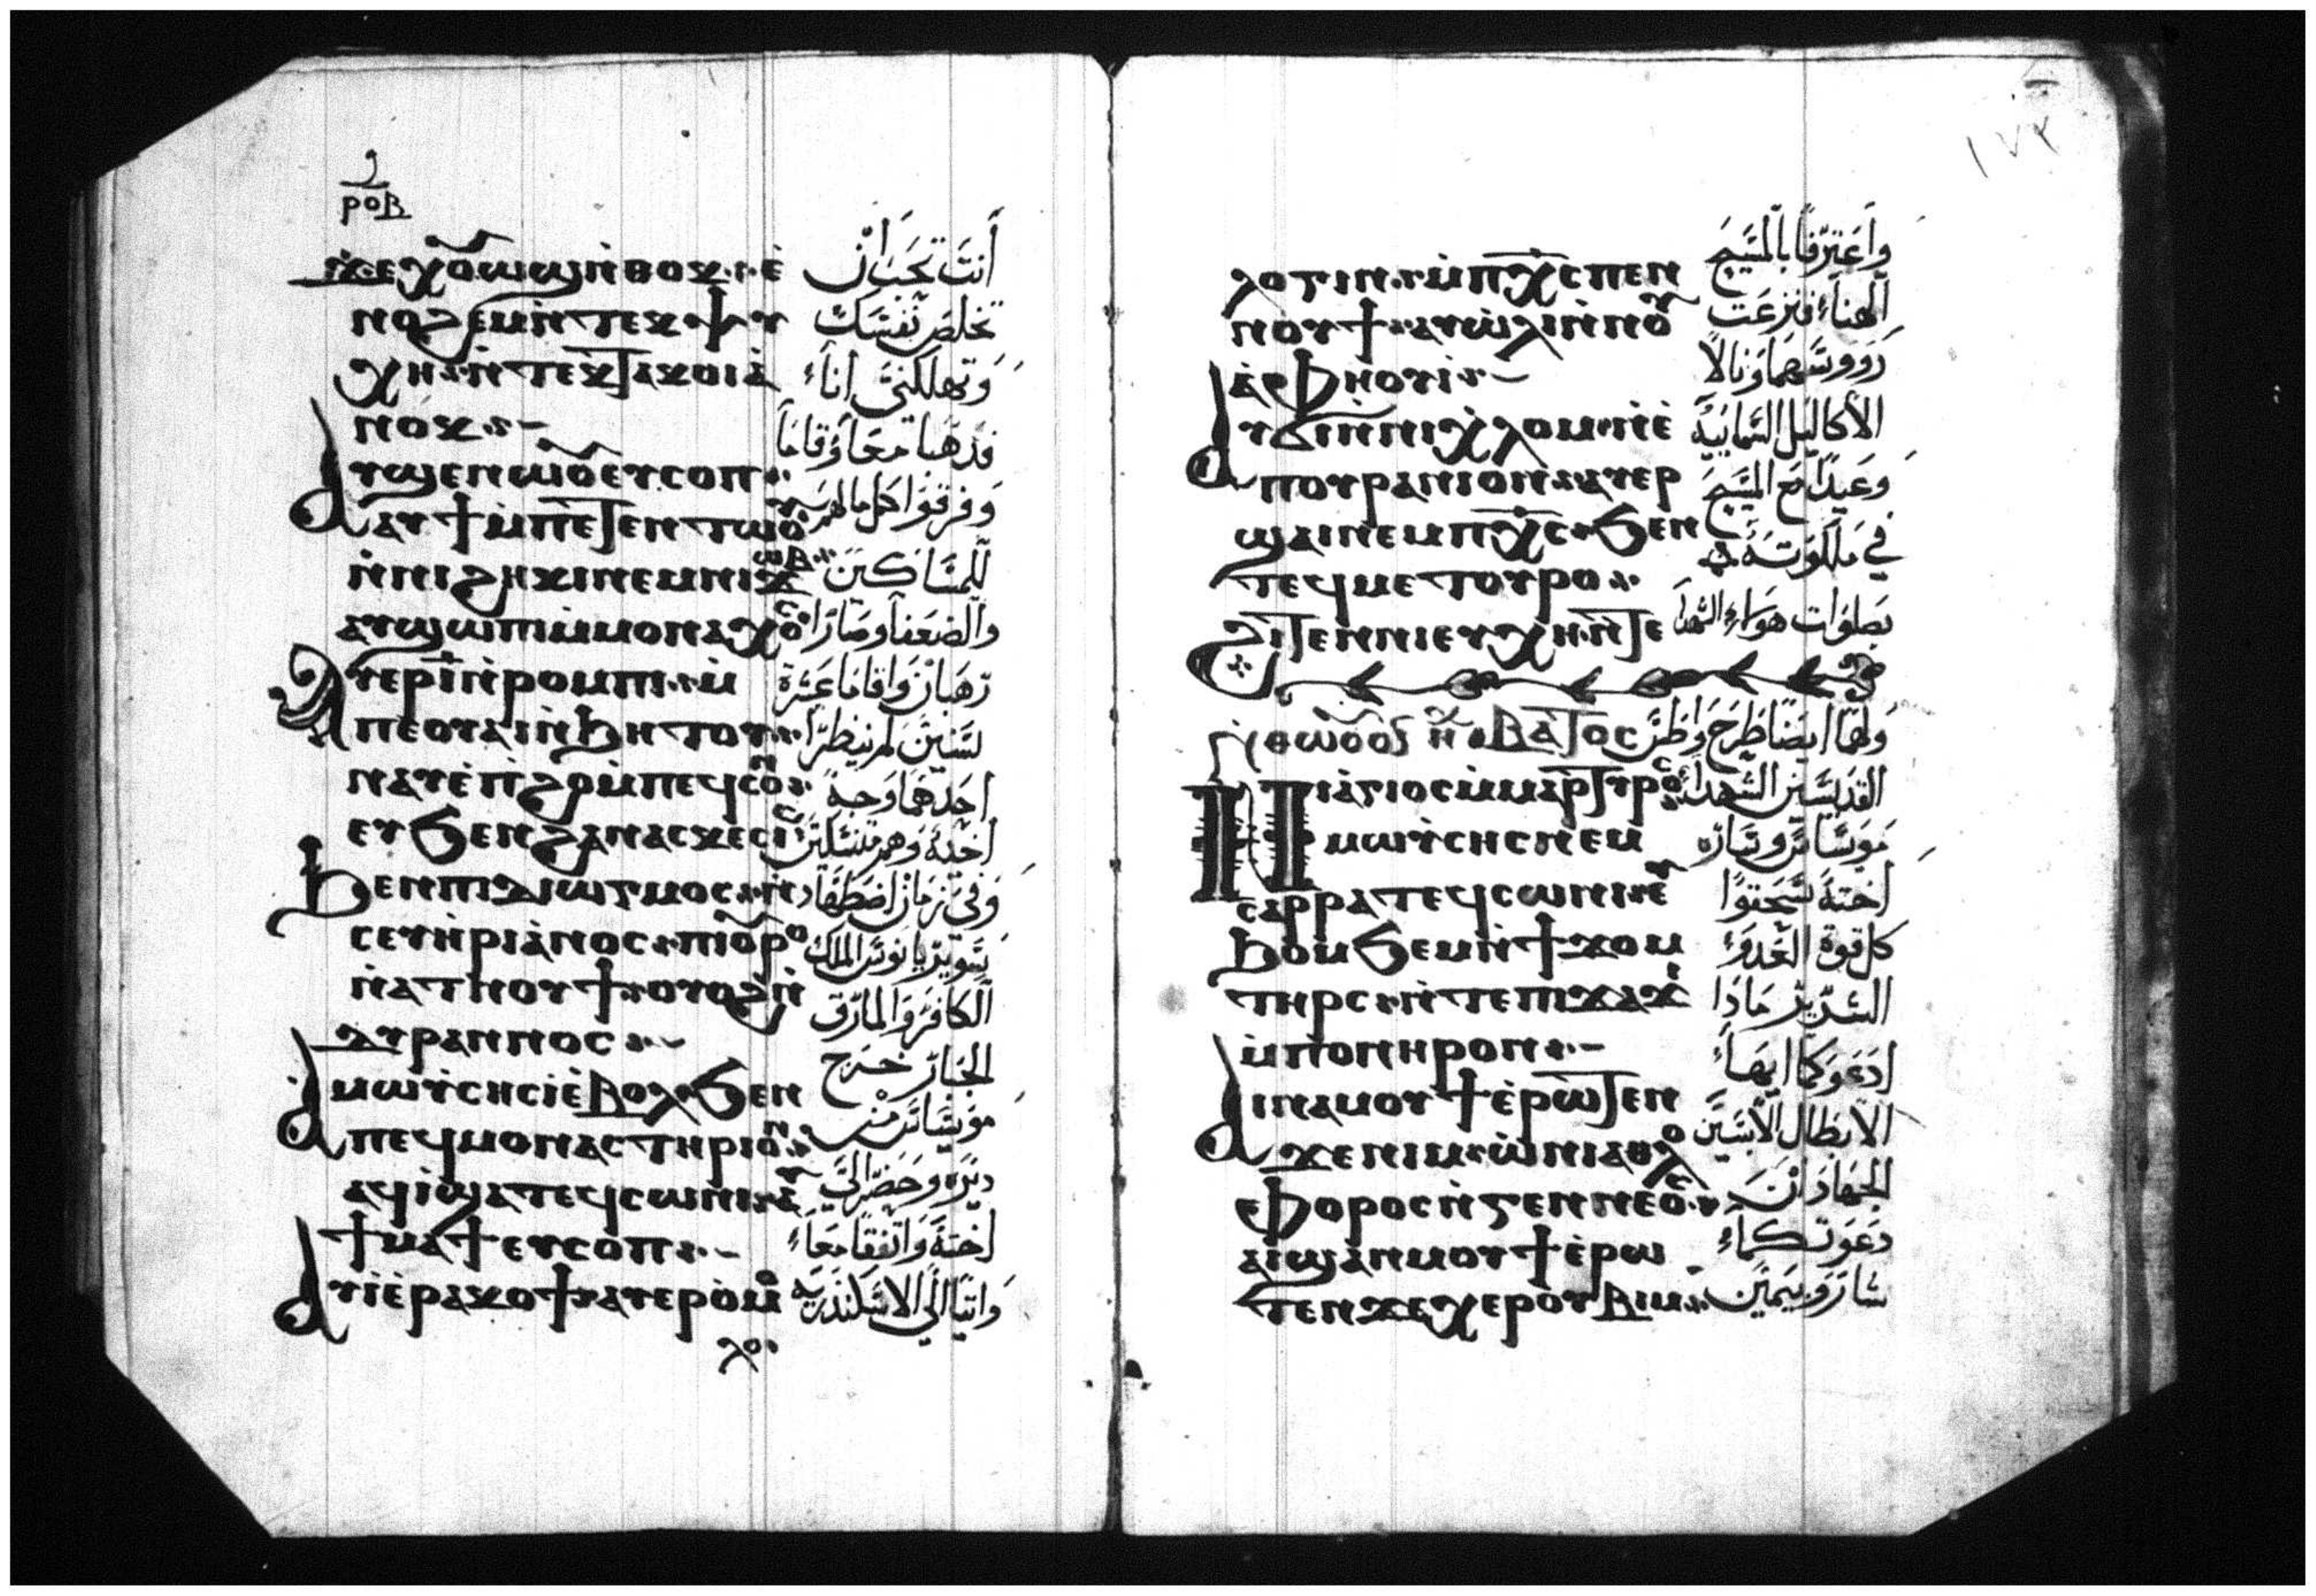 ⲣⲟⲃ
ϫⲉ ⲭⲟⲩⲱϣ ⲛ̀ⲑⲟⲕ ⲉ̀
ⲛⲟϩⲉⲙ ⲛ̀ⲧⲉⲕⲯⲩ
ⲭⲏ ⲛ̀ⲧⲉⲕⲧⲁⲕⲟⲓ ⲁ̀
ⲛⲟⲕ
ⲁⲩϣⲉⲛⲱⲟⲩ ⲉⲩⲥⲟⲡ
ⲁⲩϯ ⲙ̀ⲡⲉⲧⲉⲛⲧⲱⲟⲩ
ⲛ̀ⲛⲓϩⲏⲕⲓ ⲛⲉⲙ ⲛⲓϫⲱⲃ
ⲁⲩϣⲱⲡⲓ ⲙ̀ⲙⲟⲛⲁⲭⲟⲥ
ⲁⲩⲉⲣ ⲓ̅ ⲛ̀ⲣⲟⲙⲡⲓ ⲙ̀
ⲡⲉ ⲟⲩⲁⲓ ⲛ̀ϧⲏⲧⲟⲩ
ⲛⲁⲩ ⲉ̀ⲡϩⲟ ⲙ̀ⲡⲉϥⲥⲟⲛ
ⲉⲩϧⲉⲛ ϩⲁⲛⲁⲥⲕⲉⲥⲓⲥ
ϧⲉⲛ ⲡⲓⲇⲓⲱⲅⲙⲟⲥ ⲛ̀
ⲥⲉⲩⲏⲣⲓⲁⲛⲟⲥ ⲡⲓⲟⲩⲣⲟ
ⲛ̀ⲁⲧⲛⲟⲩϯ ⲟⲩⲟϩ ⲛ̀
ⲇⲩⲣⲁⲛⲛⲟⲥ
ⲁ ⲙⲱⲩⲥⲏⲥ ⲓ̀ ⲉ̀ⲃⲟⲗ ϧⲉⲛ
ⲡⲉϥⲙⲟⲛⲁⲥⲧⲏⲣⲓⲟⲛ
ⲁϥⲓ̀ ϣⲁ ⲧⲉϥⲥⲱⲛⲓ ⲁⲩ
ϯⲙⲁϯ ⲉⲩⲥⲟⲡ
ⲁⲩⲓ̀ ⲉ̀ⲣⲁⲕⲟϯ ⲁⲩⲉⲣⲟⲙⲟ
ⲗⲟ
أنت تحب أن
تخلص نفسك
وتهلكني أناء
فذهبا معاً وقاما
وفرقوا كل ما لهم
للمساكين
والضعفا وصارا
رهبان واقاما عشرة
سنين لم ينظر
احدهما وجه
أخيه وهم متنسكين
وفي زمان اضطهاد
سويريانوس الملك
الكافر والمارق
الجبار خرج
مويساس من
ديره وحضر الي
اخته واتفقا معاء
واتيا الي الاسكندريه
١٧٢
ⲗⲟⲅⲓⲛ ⲙ̀ⲡⲭ̅ⲥ̅ ⲡⲉⲛ
ⲛⲟⲩϯ ⲁⲩⲱ̀ⲗⲓ ⲛ̀ⲛⲟⲩ
ⲁ̀ⲫⲏⲟⲩⲓ̀
ⲁⲩϭⲓ ⲛ̀ⲛⲓⲭⲗⲟⲙ ⲛ̀ⲉ̀
ⲡⲟⲩⲣⲁⲛⲓⲟⲛ ⲁⲩⲉⲣ
ϣⲁⲓ ⲛⲉⲙ ⲡⲭ̅ⲥ̅ ϧⲉⲛ
ⲧⲉϥⲙⲉⲧⲟⲩⲣⲟ
ϩⲓⲧⲉⲛ ⲛⲓⲉⲩⲭⲏ ⲛ̀ⲧⲉ
ⲃⲁⲧⲟⲥ
ⲛⲓⲁⲅⲓⲟⲥ ⲙ̀ⲙⲁⲣⲧⲩⲣⲟⲥ
ⲙⲱⲩⲥⲏⲥ ⲛⲉⲙ
ⲥⲁⲣⲣⲁ ⲧⲉϥⲥⲱⲛⲓ ⲉⲩ
ϧⲟⲙϧⲉⲙ ⲛ̀ϯϫⲟⲙ
ⲧⲏⲣⲥ ⲛ̀ⲧⲉ ⲡⲓϫⲁϫⲓ
ⲙ̀ⲡⲟⲛⲏⲣⲟⲛ
ⲁⲓⲛⲁⲙⲟⲩϯ ⲉ̀ⲣⲱⲧⲉⲛ
ϫⲉ ⲛⲓⲙ ⲱ̀ ⲛⲓⲁⲑⲗⲟ
ⲫⲟⲣⲟⲥ ⲛ̀ⲅⲉⲛⲛⲉⲟⲥ
ⲁⲓϣⲁⲛⲙⲟⲩϯ ⲉ̀ⲣⲱ
ⲧⲉⲛ ϫⲉ ⲭⲉⲣⲟⲩⲃⲓⲙ
واعترفا بالمسيح
الهناء فنزعت
روؤسهما ونالا
الاكاليل السمايية
وعيدا مع المسيح
في ملكوته
بصلوات هولاء الشهدا
ولهما ايضاً طرح واطس
القديسين الشهداء
مويساس وساره
اخته سحقوا
كل قوة العدوء
الشرير ماذا
ادعوكما ايهاء
الابطال الابسين
الجهاد ان
دعوتكماء
شاروبيمين